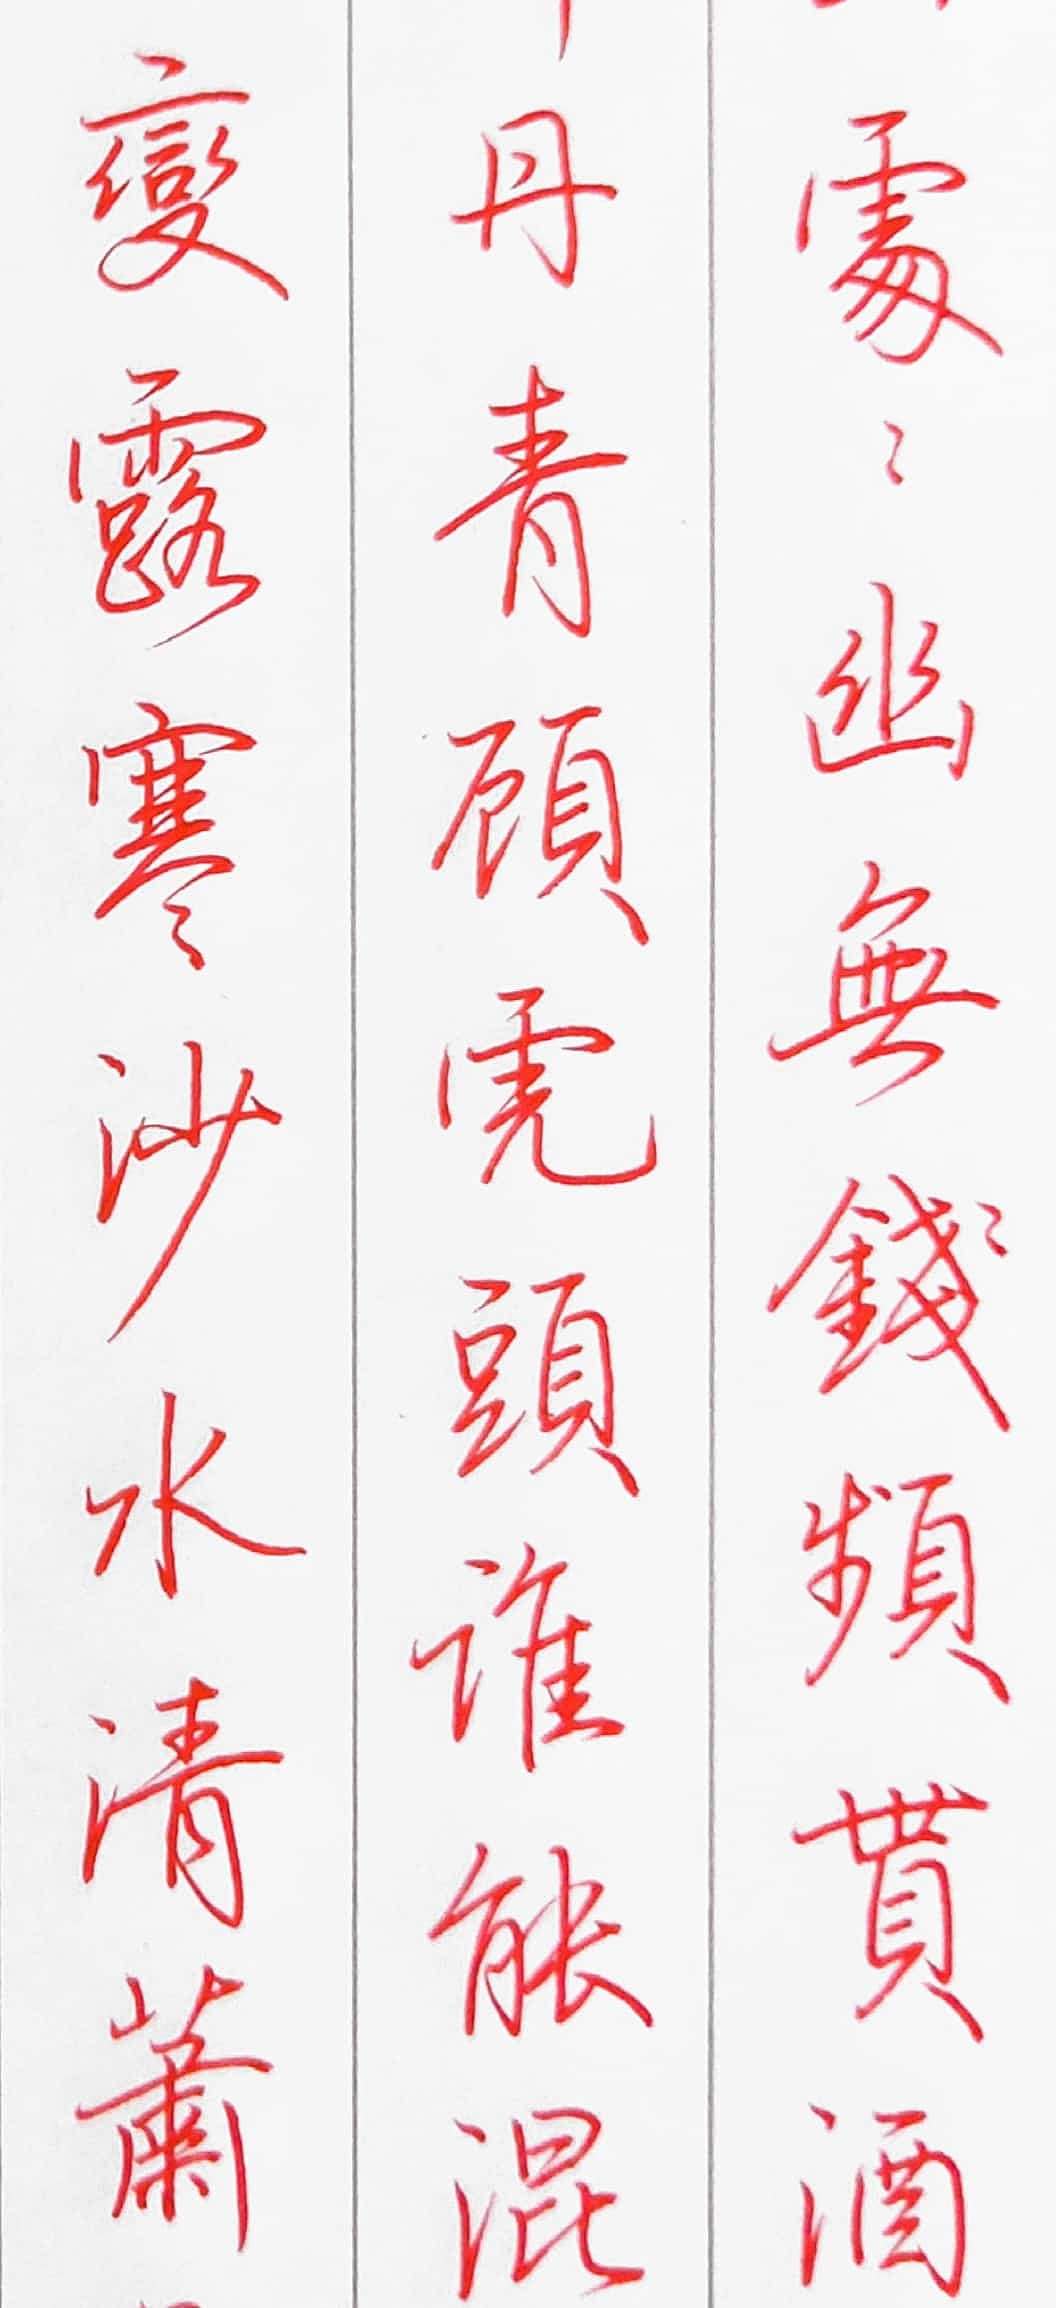 處〻幽無錢頻貰酒
丹青顧虎頭誰能混
變露寒沙水清蕭